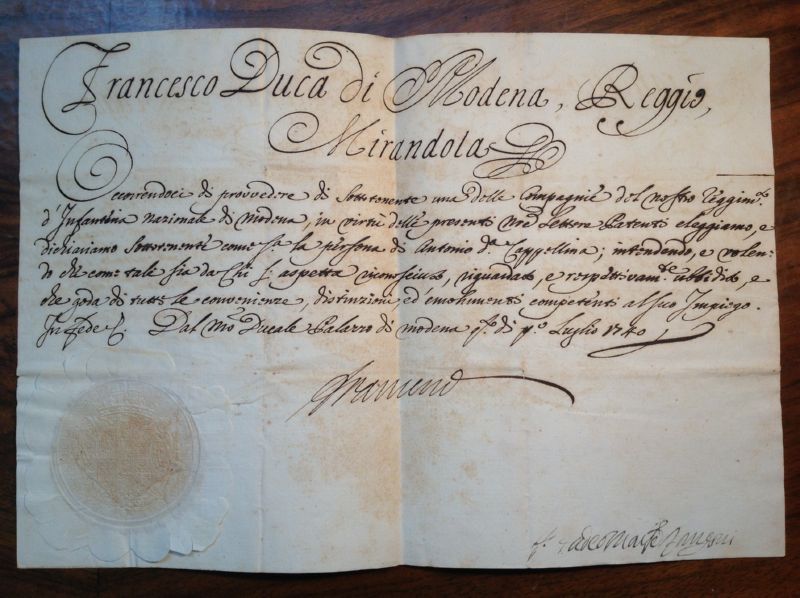 Francesco Duca di Modena, Reggio,
Mirandola &
Occorrendoci di provvedere di Sottotenente una delle Compagnie del nostro Reggim.to
d'Infanteria nazionale di Modena, in virtù delle presenti nre Lettere Patenti eleggiamo, e
dichiariamo Sottotenente come s.a la persona di Antonio d.a Coppellina; intendendo, e volen-
do che come tale sia da chi s: aspetta riconosciuto, riguardato, e rispettivam.te ubbidito, e
che goda di tutte le convenienze, distinzioni ed emolumenti competenti al suo Impiego.
In Fede &. Dal nro Ducale Palazzo di Modena q.to dì p.o Luglio 1740
Fran